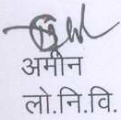 अमीन
लो.नि.वि.